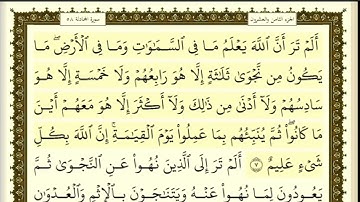 الجزء الثامن والعشرون سورة المجادلة ٥٨
أَلَمْ تَرَ أَنَّ ٱللَّهَ يَعْلَمُ مَا فِى ٱلسَّمَٰوَٰتِ وَمَا فِى ٱلْأَرْضِ ۖ مَا
يَكُونُ مِن نَّجْوَىٰ ثَلَٰثَةٍ إِلَّا هُوَ رَابِعُهُمْ وَلَا خَمْسَةٍ إِلَّا هُوَ
سَادِسُهُمْ وَلَآ أَدْنَىٰ مِن ذَٰلِكَ وَلَآ أَكْثَرَ إِلَّا هُوَ مَعَهُمْ أَيْنَ
مَا كَانُوا۟ ۖ ثُمَّ يُنَبِّئُهُم بِمَا عَمِلُوا۟ يَوْمَ ٱلْقِيَٰمَةِ ۚ إِنَّ ٱللَّهَ بِكُلِّ
شَىْءٍ عَلِيمٌ ٧ أَلَمْ تَرَ إِلَى ٱلَّذِينَ نُهُوا۟ عَنِ ٱلنَّجْوَىٰ ثُمَّ
يَعُودُونَ لِمَا نُهُوا۟ عَنْهُ وَيَتَنَٰجَوْنَ بِٱلْإِثْمِ وَٱلْعُدْوَٰنِ